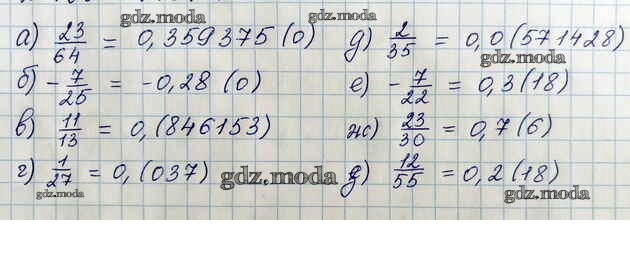 а) 23/64 = 0,359375 (0)
б) - 7/25 = -0,28 (0)
в) 11/13 = 0,(846153)
г) 1/27 = 0,(037)
д) 2/35 = 0,0(571428)
е) - 7/22 = 0,3(18)
ж) 23/30 = 0,7(6)
12/55 = 0,2(18)
gdz.moda
gdz.moda
gdz.moda
gdz.moda
gdz.moda
gdz.moda